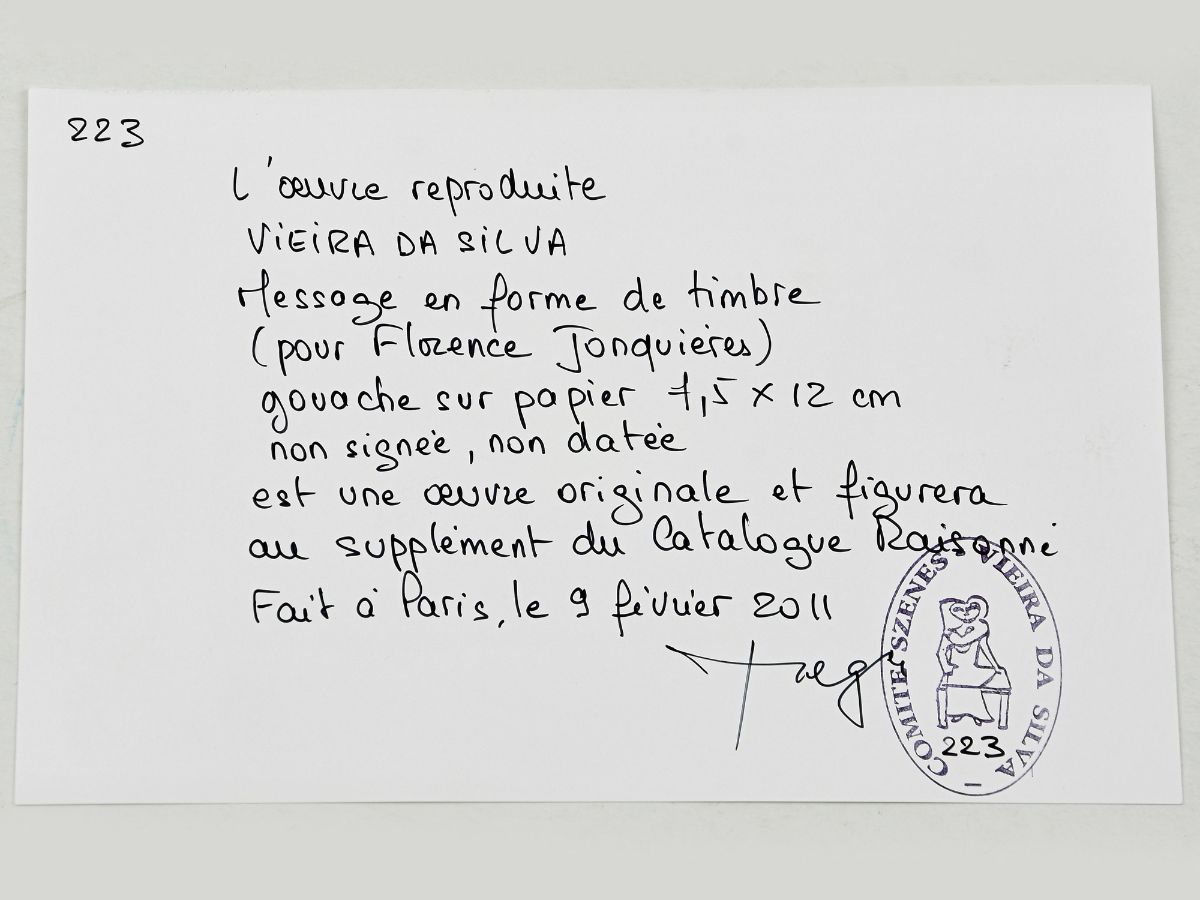 223
L'œuvre reproduite
VIEIRA DA SILVA
Message en forme de timbre
(pour Florence Jonquières)
gouache sur papier 7,5 x 12 cm
non signée, non datée
est une œuvre originale et figurera
au supplément du Catalogue Raisonné
Fait à Paris, le 9 février 2011
COMITE SZENES - VIEIRA DA SILVA -
223